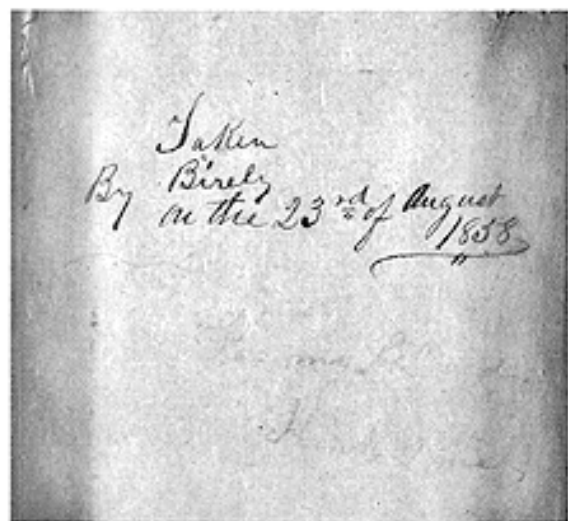 Taken
By Birely
on the 23rd of August
1858